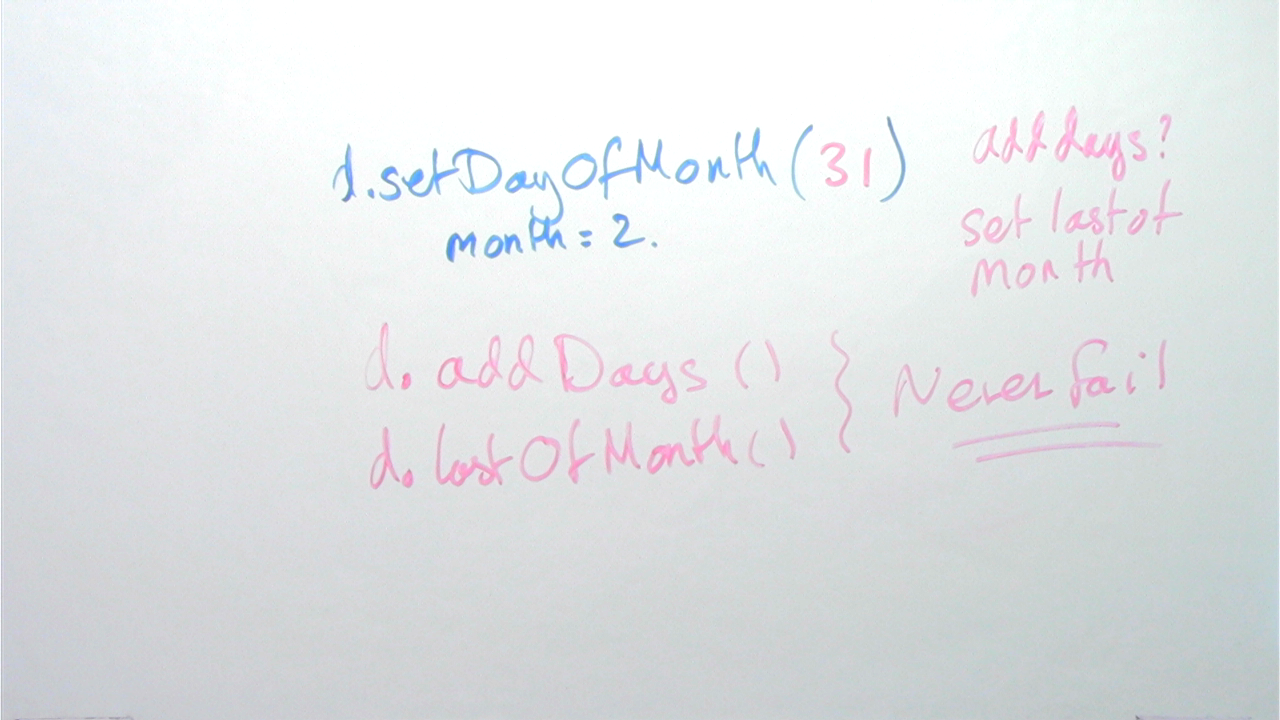 d.setDayOfMonth(31)
month = 2.
add days?
set last of
month
d. addDays ()
d. lastOfMonth()
} Never fail